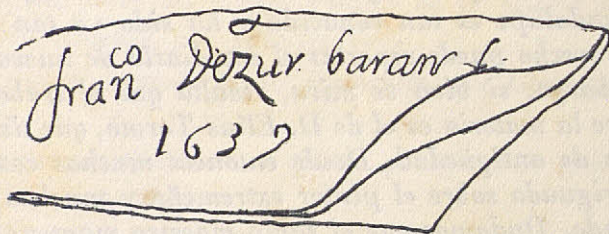 fran^co Dezur baran f.
1639